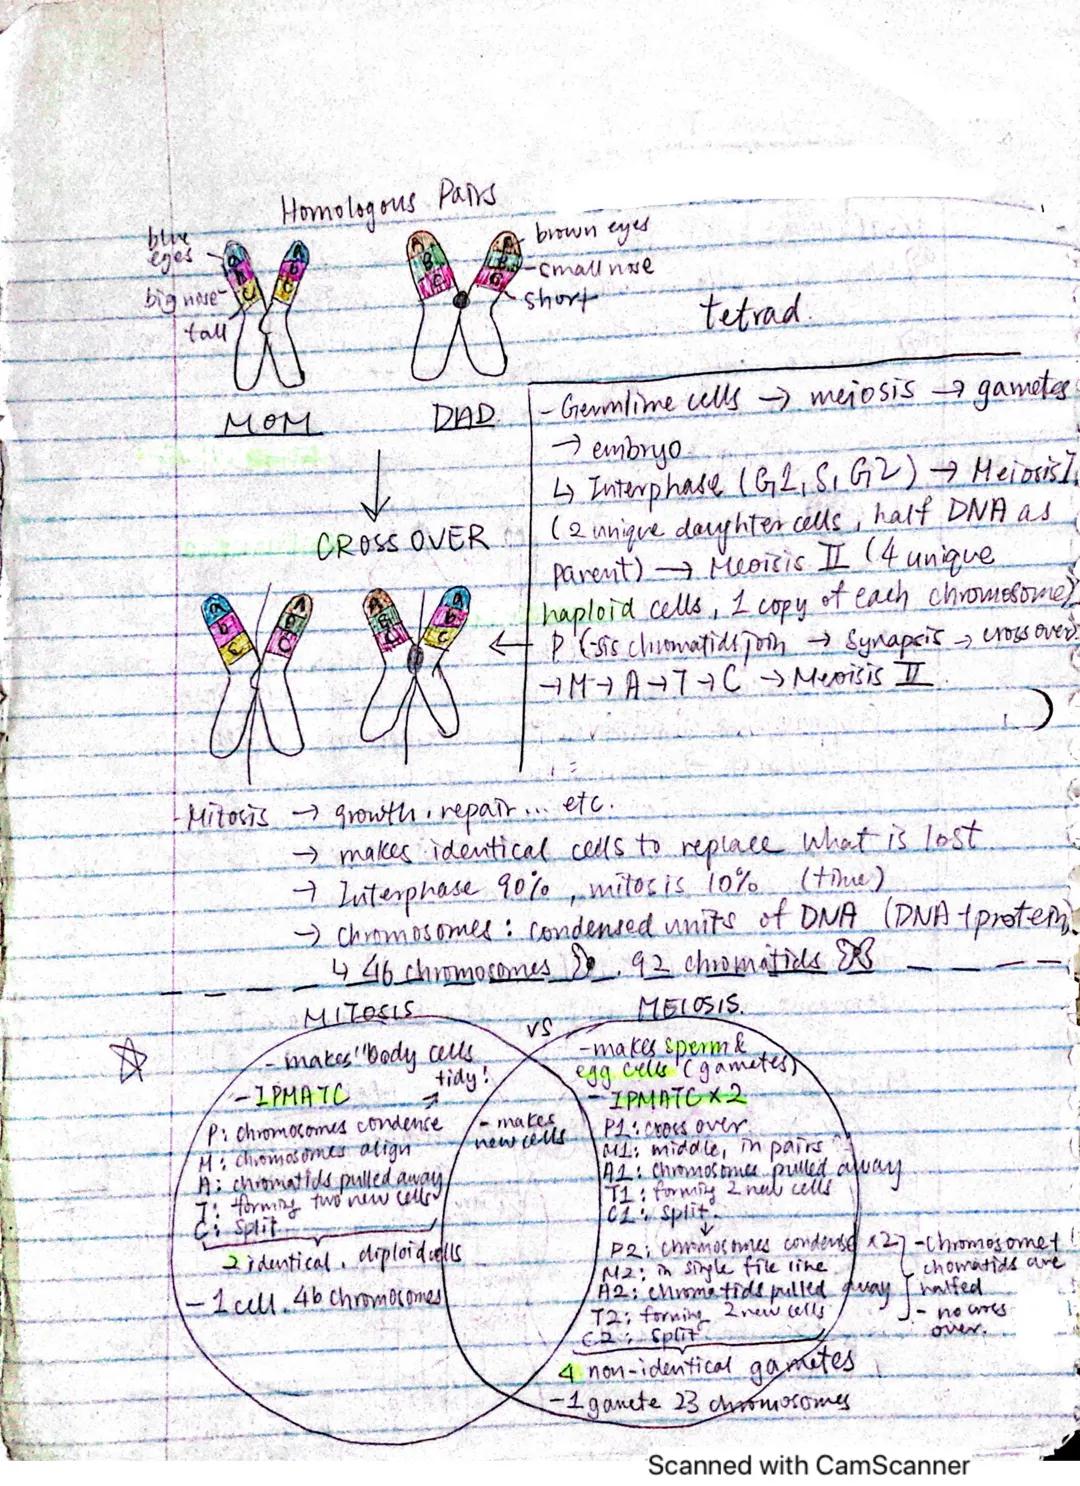 Homologous Pairs
blue
eyes
big nose
tall
a
b
C
A
B
C
brown eyes
small nose
short
tetrad.
MOM
DAD
CROSSOVER
- Germlime cells → meiosis → gametes
→ embryo
↳ Interphase (G1, S, G2) → Meiosis I
(2 unique daughter cells, half DNA as
parent) → Meoisis II (4 unique
haploid cells, 1 copy of each chromosome)
P (sis chromatids join → synapsis → cross over)
→ M → A → T → C → Meoisis II
)
- Mitosis → growth, repair... etc.
→ makes identical cells to replace what is lost
→ Interphase 90%, mitosis 10% (time)
→ chromosomes: condensed units of DNA (DNA + protein)
↳ 46 chromosomes, 92 chromatids
MITOSIS
vs
MEIOSIS.
- makes "body cells
tidy!
- IPMATC
P: chromosomes condense
M: chromosomes align
A: chromatids pulled away
T: forming two new cells
C: split
2 identical, diploid cells
- 1 cell. 46 chromosomes
- makes
new cells
- makes sperm &
egg cells (gametes)
- IPMATC x 2
P1: cross over
M1: middle, in pairs
A1: chromosomes pulled away
T1: forming 2 new cells
C1: split.
P2: chromosomes condense x2
M2: in single file line
A2: chromatids pulled away
T2: forming 2 new cells
C2: split
- chromosome +
chomatids are
halfed
- no cross
over.
4 non-identical gametes
- 1 gamete 23 chromosomes
Scanned with CamScanner